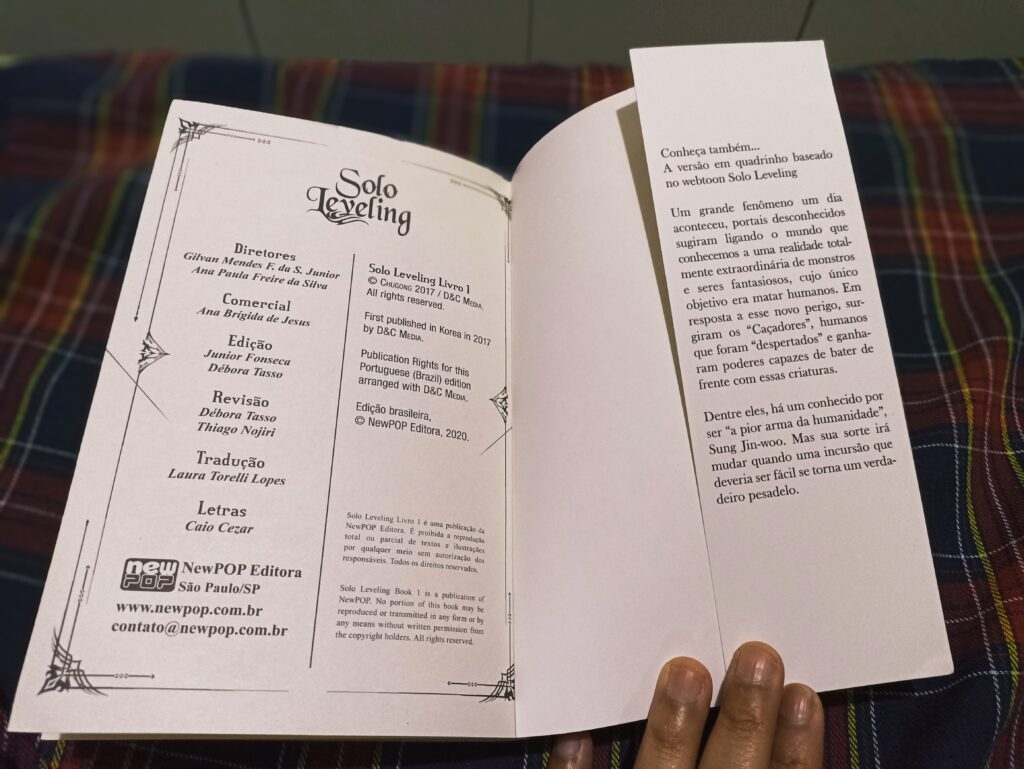 Solo
Leveling
Diretores
Gilvan Mendes F. da S. Junior
Ana Paula Freire da Silva
Comercial
Ana Brígida de Jesus
Edição
Junior Fonseca
Débora Tasso
Revisão
Débora Tasso
Thiago Nojiri
Tradução
Laura Torelli Lopes
Letras
Caio Cezar
new
POP
NewPOP Editora
São Paulo/SP
www.newpop.com.br
contato@newpop.com.br
Solo Leveling Livro 1
© Chugong 2017 / D&C Media.
All rights reserved.
First published in Korea in 2017
by D&C Media.
Publication Rights for this
Portuguese (Brazil) edition
arranged with D&C Media.
Edição brasileira,
© NewPOP Editora, 2020.
Solo Leveling Livro 1 é uma publicação da
NewPOP Editora. É proibida a reprodução
total ou parcial de textos e ilustrações
por qualquer meio sem autorização dos
responsáveis. Todos os direitos reservados.
Solo Leveling Book 1 is a publication of
NewPOP. No portion of this book may be
reproduced or transmitted in any form or by
any means without written permission from
the copyright holders. All rights reserved.
Conheça também...
A versão em quadrinho baseado
no webtoon Solo Leveling
Um grande fenômeno um dia
aconteceu, portais desconhecidos
sugiram ligando o mundo que
conhecemos a uma realidade total-
mente extraordinária de monstros
e seres fantasiosos, cujo único
objetivo era matar humanos. Em
resposta a esse novo perigo, sur-
giram os “Caçadores”, humanos
que foram “despertados” e ganha-
ram poderes capazes de bater de
frente com essas criaturas.
Dentre eles, há um conhecido por
ser “a pior arma da humanidade”,
Sung Jin-woo. Mas sua sorte irá
mudar quando uma incursão que
deveria ser fácil se torna um verda-
deiro pesadelo.